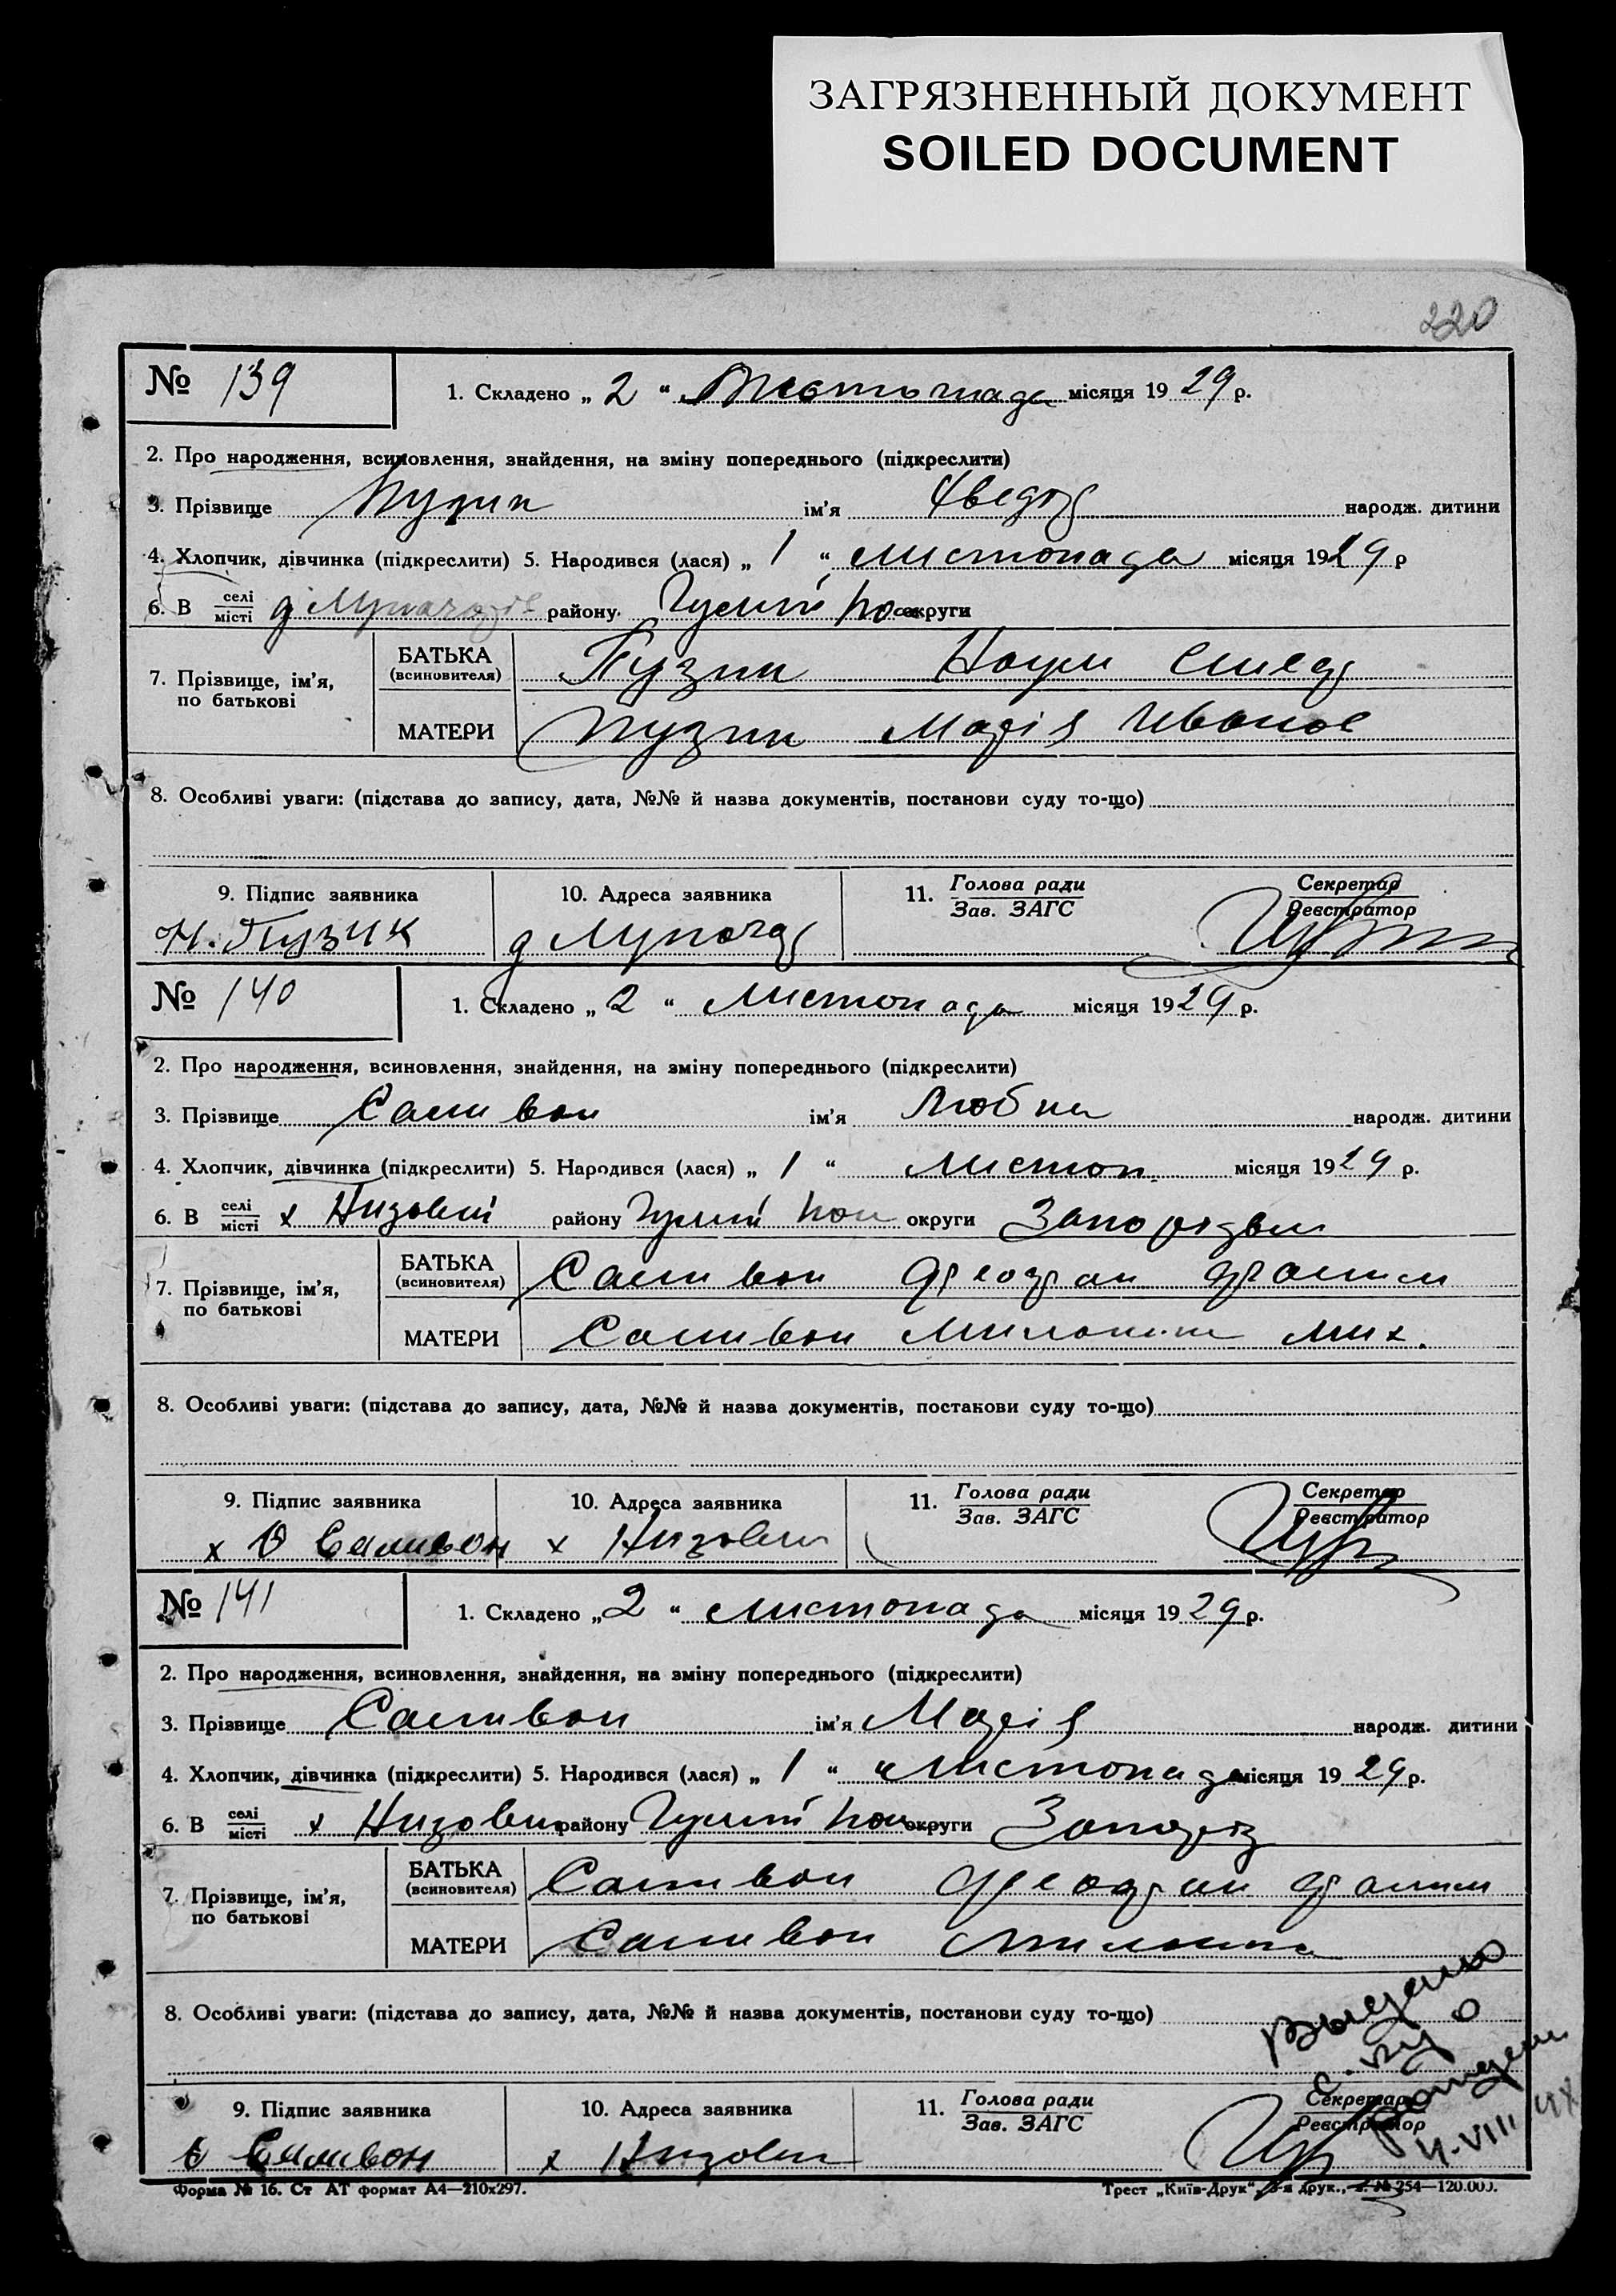 ЗАГРЯЗНЕННЫЙ ДОКУМЕНТ
SOILED DOCUMENT
220
№ 139
1. Складено „ 2 “ місяця 1929 р.
2. Про народження, всиновлення, знайдення, на зміну попереднього (підкреслити)
3. Прізвище Пузик ім'я Хведор народж. дитини
4. Хлопчик, дівчинка (підкреслити) 5. Народився (лася) „ 1 “ листопада місяця 1929 р
6. В селі місті району Гуляй Пол округи
7. Прізвище, ім'я, по батькові
БАТЬКА (всиновителя) Пузик Наум
МАТЕРИ Пузик Марія Иванов
8. Особливі уваги: (підстава до запису, дата, №№ й назва документів, постанови суду то-що)
9. Підпис заявника 10. Адреса заявника 11. Голова ради Зав. ЗАГС Секретар Реєстратор
Н. Пузик
№ 140
1. Складено „ 2 “ Листопада місяця 1929 р.
2. Про народження, всиновлення, знайдення, на зміну попереднього (підкреслити)
3. Прізвище Саливон ім'я Любка народж. дитини
4. Хлопчик, дівчинка (підкреслити) 5. Народився (лася) „ 1 “ Листоп. місяця 1929 р.
6. В селі місті х Низовий району Гуляй Пол округи
7. Прізвище, ім'я, по батькові
БАТЬКА (всиновителя) Саливон
МАТЕРИ Саливон Мих.
8. Особливі уваги: (підстава до запису, дата, №№ й назва документів, постанови суду то-що)
9. Підпис заявника 10. Адреса заявника 11. Голова ради Зав. ЗАГС Секретар Реєстратор
Саливон х Низовий
№ 141
1. Складено „ 2 “ листопада місяця 1929 р.
2. Про народження, всиновлення, знайдення, на зміну попереднього (підкреслити)
3. Прізвище Саливон ім'я Марія народж. дитини
4. Хлопчик, дівчинка (підкреслити) 5. Народився (лася) „ 1 “ Листопада місяця 1929 р.
6. В селі місті х Низовий району Гуляй Пол округи Запоріз
7. Прізвище, ім'я, по батькові
БАТЬКА (всиновителя) Саливон
МАТЕРИ Саливон
8. Особливі уваги: (підстава до запису, дата, №№ й назва документів, постанови суду то-що)
9. Підпис заявника 10. Адреса заявника 11. Голова ради Зав. ЗАГС Секретар Реєстратор
Саливон х Низовий
Выдано
Форма № 16. Ст АТ формат А4—210х297. Трест „Київ-Друк“, 254—120.000.